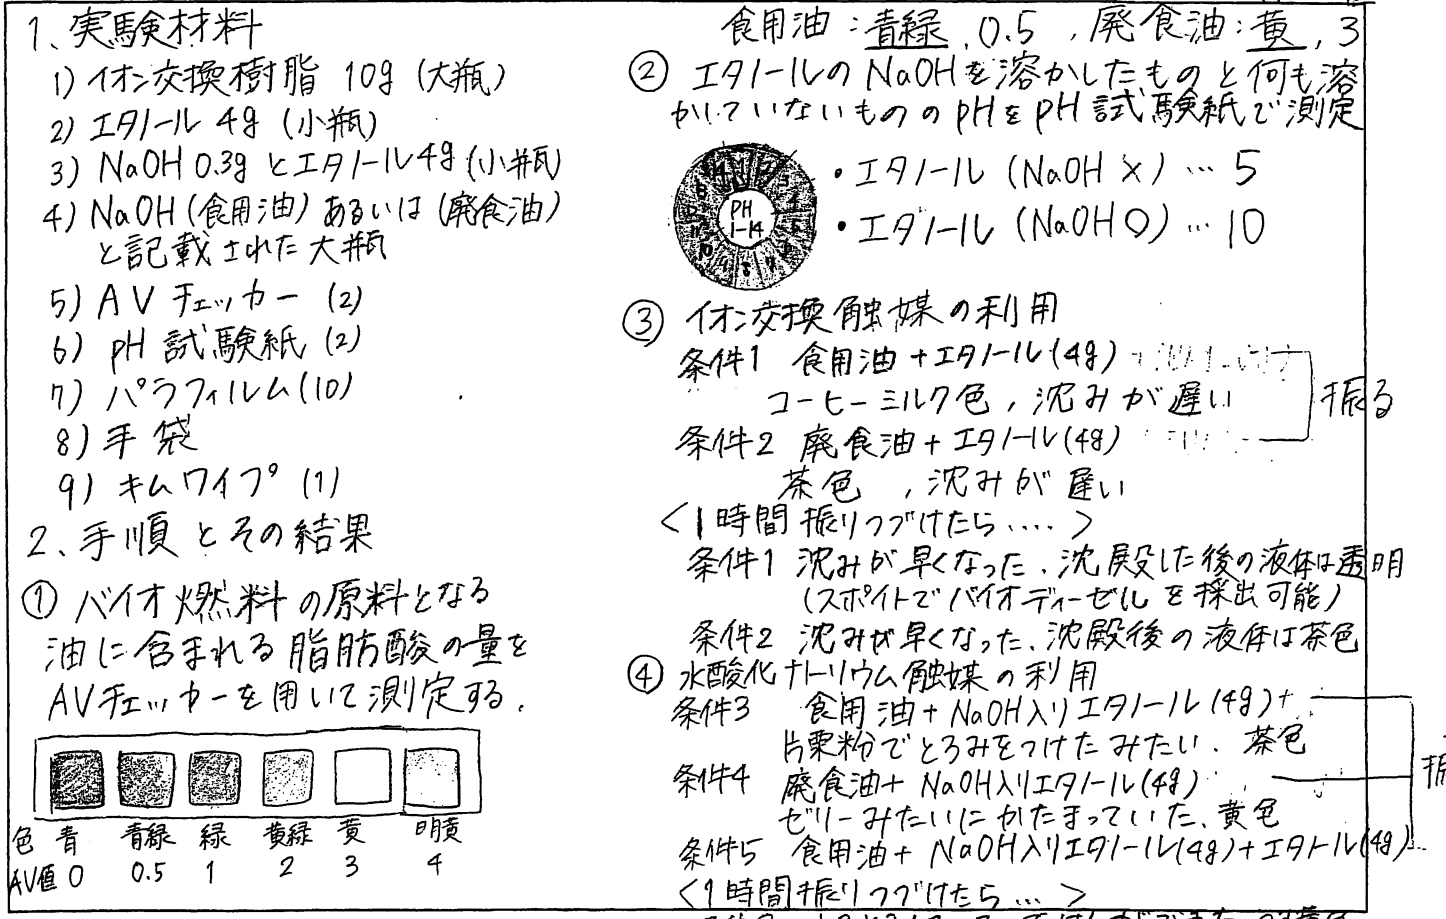 1、実験材料
1) イオン交換樹脂 10g (大瓶)
2) エタノール 4g (小瓶)
3) NaOH 0.3g とエタノール4g (小瓶)
4) NaOH (食用油) あるいは (廃食油)
と記載された大瓶
5) AV チェッカー (2)
6) pH 試験紙 (2)
7) パラフィルム(10)
8) 手袋
9) キムワイプ (1)
2、手順とその結果
① バイオ燃料の原料となる
油に含まれる脂肪酸の量を
AVチェッカーを用いて測定する.
色 青 青緑 緑 黄緑 黄 明黄
AV値 0 0.5 1 2 3 4
食用油:青緑, 0.5 , 廃食油:黄, 3
② エタノールのNaOHを溶かしたものと何も溶
かしていないもののpHをpH試験紙で測定
PH
1-14
・エタノール (NaOH ×) … 5
・エタノール (NaOH○) … 10
③ イオン交換触媒の利用
条件1 食用油+エタノール(4g)
コーヒーミルク色, 沈みが遅い
振る
条件2 廃食油+エタノール(4g)
茶色 , 沈みが遅い
<1時間振りつづけたら....>
条件1 沈みが早くなった. 沈殿した後の液体は透明
(スポイトでバイオディーゼルを採出可能)
条件2 沈みが早くなった、沈殿後の液体は茶色
④ 水酸化ナトリウム触媒の利用
条件3 食用油+NaOH入りエタノール(4g)+
片栗粉でとろみをつけたみたい. 茶色
条件4 廃食油+NaOH入りエタノール(4g)
ゼリーみたいにかたまっていた、黄色
条件5 食用油+NaOH入りエタノール(4g)+エタノール(4g)
<1時間振りつづけたら…>